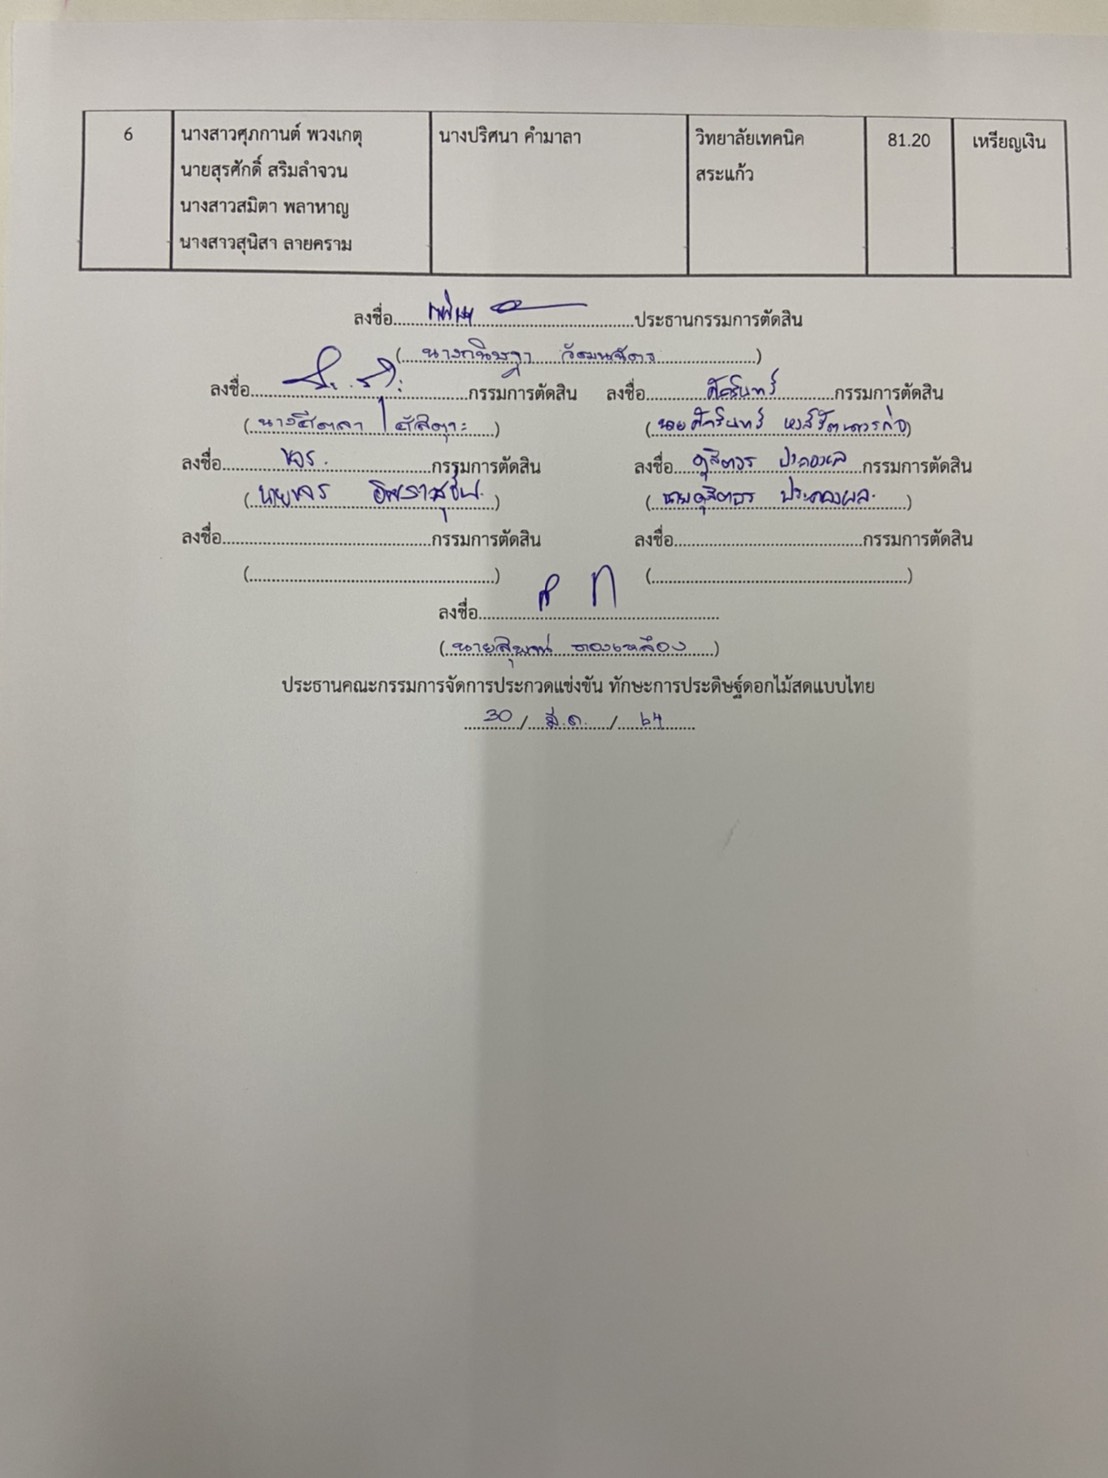 6 นางสาวศุภกานต์ พวงเกตุ นางปริศนา คำมาลา วิทยาลัยเทคนิค 81.20 เหรียญเงิน
นายสุรศักดิ์ สริมลำจวน สระแก้ว
นางสาวสมิตา พลาหาญ
นางสาวสุนิสา ลายคราม
ลงชื่อ..............................ประธานกรรมการตัดสิน
(นางกนิษฐา)
ลงชื่อ..............................กรรมการตัดสิน ลงชื่อ ศักรินทร์ กรรมการตัดสิน
(นายศักรินทร์)
ลงชื่อ ขจร. กรรมการตัดสิน ลงชื่อ ดุสิตธร ประคองผล กรรมการตัดสิน
(นายขจร) (นายดุสิตธร ประคองผล)
ลงชื่อ..............................กรรมการตัดสิน ลงชื่อ..............................กรรมการตัดสิน
(..............................) (..............................)
ลงชื่อ..............................
(นายสุพจน์ ทองเหลือง)
ประธานคณะกรรมการจัดการประกวดแข่งขัน ทักษะการประดิษฐ์ดอกไม้สดแบบไทย
30 / มี.ค. / ๖๔